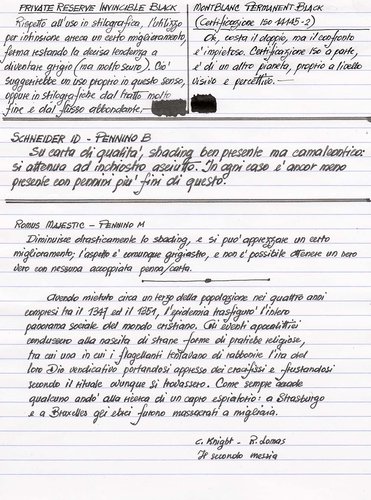 PRIVATE RESERVE INVINCIBLE BLACK
Rispetto all'uso in stilografica, l'utilizzo
per intinsione arreca un certo miglioramento,
ferma restando la decisa tendenza a
diventare grigio (ma molto scuro). Cio'
suggerirebbe un uso proprio in questo senso,
oppure in stilografiche dal tratto molto
fine e dal flusso abbondante.
MONTBLANC PERMANENT BLACK
(Certificazione ISO 14145-2)
Ok, costa il doppio, ma il confronto
è impietoso. Certificazione ISO a parte,
e' di un altro pianeta, proprio a livello
visivo e percettivo.
SCHNEIDER ID - PENNINO B
Su carta di qualita', shading ben presente ma camaleontico:
si attenua ad inchiostro asciutto. In ogni caso e' ancor meno
presente con pennini piu' fini di questo.
ROMUS MAJESTIC - PENNINO M
Diminuisce drasticamente lo shading, e si puo' apprezzare un certo
miglioramento; l'aspetto e' comunque grigiastro, e non e' possibile ottenere un nero
vero con nessuna accoppiata penna/carta.
Avendo mietuto circa un terzo della popolazione nei quattro anni
compresi tra il 1347 ed il 1351, l'epidemia trasfiguro' l'intero
panorama sociale del mondo cristiano. Gli eventi apocalittici
condussero alla nascita di strane forme di pratiche religiose,
tra cui una in cui i flagellanti tentavano di rabbonire l'ira del
loro Dio vendicativo portandosi appresso dei crocifissi e frustandosi
secondo il rituale ovunque si trovassero. Come sempre accade
qualcuno ando' alla ricerca di un capro espiatorio: a Strasburgo
e a Bruxelles gli ebrei furono massacrati a migliaia.
C. Knight - R. Lomas
Il secondo messia